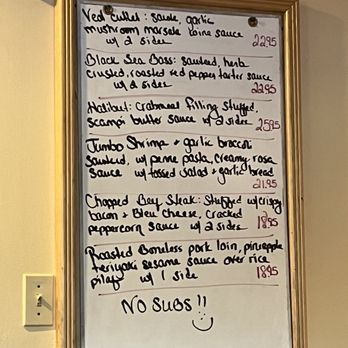 Veal Cutlet: saute, garlic
mushroom marsala wine sauce
w/ 2 sides 22.95
Black Sea Bass: sauteed, herb
crusted, roasted red pepper tarter sauce
w/ 2 sides 22.95
Halibut: Crabmeat filling stuffed,
scampi butter sauce w/ 2 sides 25.95
Jumbo Shrimp + garlic broccoli
sauteed, w/ penne pasta, creamy rosa
sauce w/ tossed salad + garlic bread
21.95
Chopped Beef Steak: Stuffed w/ crispy
bacon + Bleu Cheese, Cracked
peppercorn sauce w/ 2 sides 18.95
Roasted Boneless pork loin, pineapple
teriyaki sesame sauce over rice
pilaf w/ 1 side 18.95
NO SUBS!!